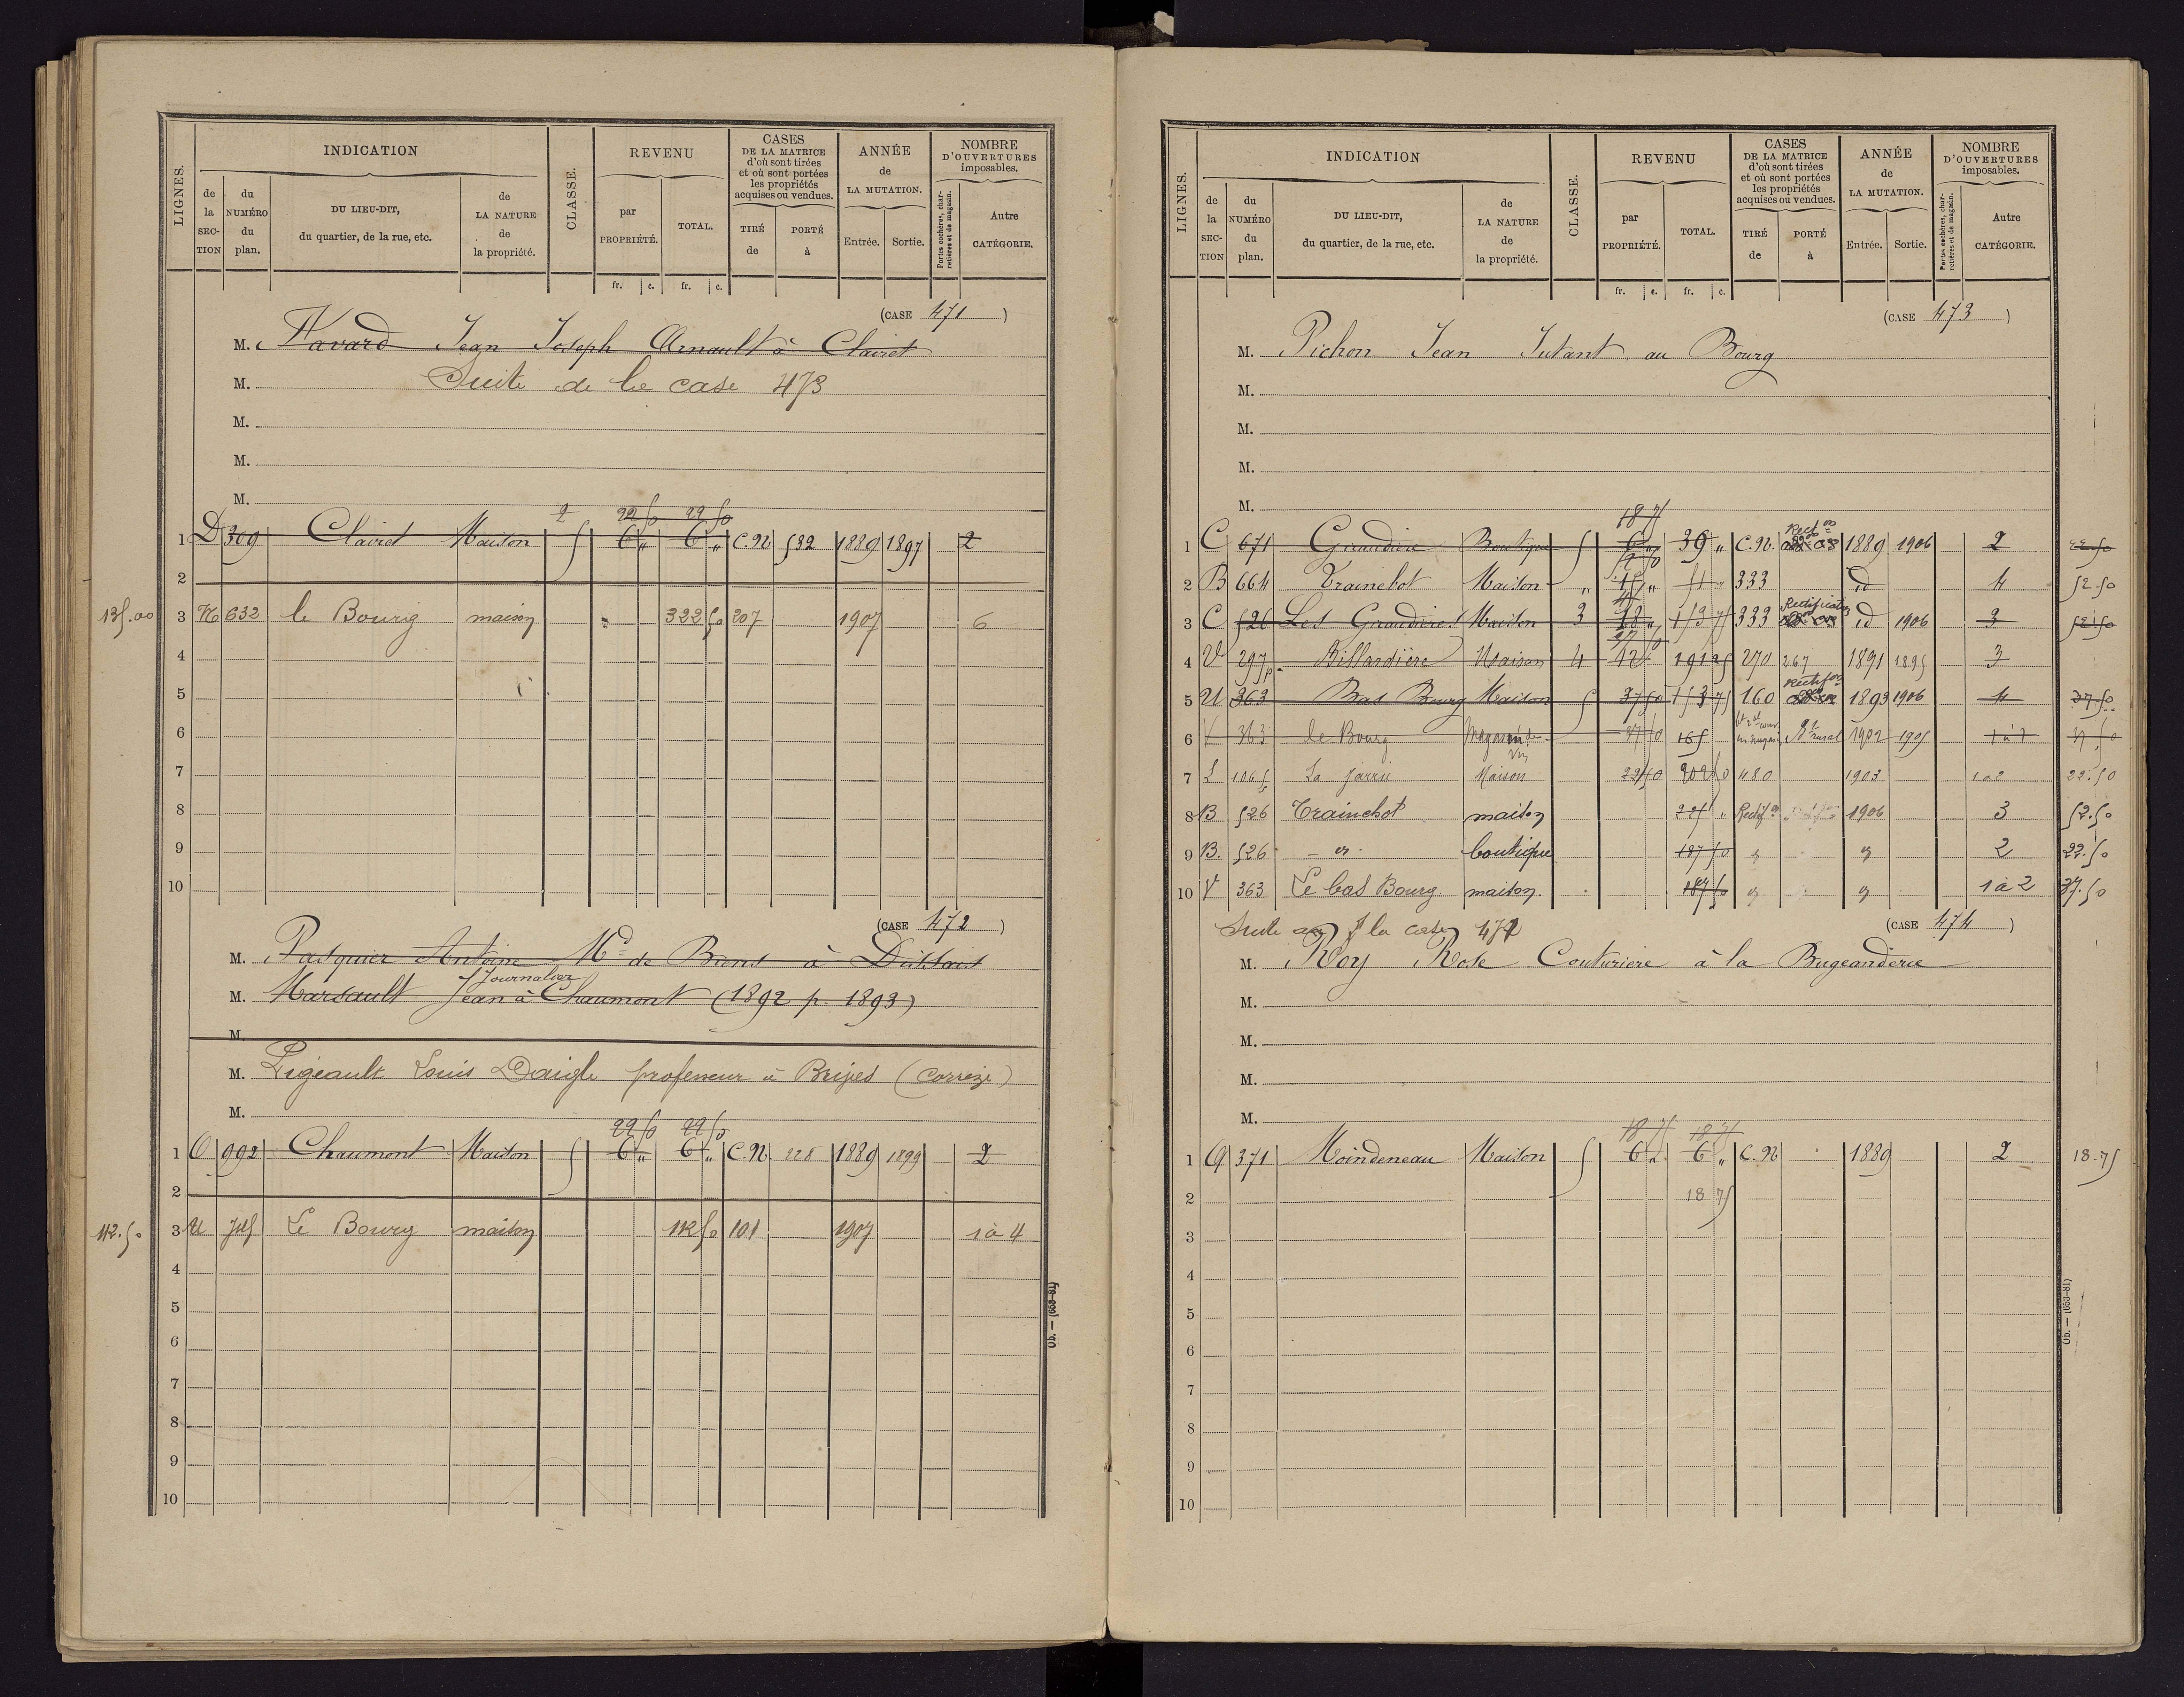 LIGNES. INDICATION CLASSE. REVENU CASES DE LA MATRICE d'où sont tirées et où sont portées les propriétés acquises ou vendues. ANNÉE de LA MUTATION. NOMBRE D'OUVERTURES imposables.
de la SECTION du NUMÉRO du plan. DU LIEU-DIT, du quartier, de la rue, etc. de LA NATURE de la propriété. par PROPRIÉTÉ. TOTAL. TIRÉ de PORTÉ à Entrée. Sortie. Portes cochères, charretières et de magasin. Autre CATÉGORIE.
fr. c. fr. c.
(CASE 471)
M. Favard Jean Joseph Arnault à Clairet
M. Suite de la case 473
M.
M.
M.
2 22 50 22 50
1 D 309 Clairet Maison 5 6 „ 6 „ C.N 532 1889 1897 2
2
135.00 3 632 le Bourg maison 322 50 207 1907 6
4
5
6
7
8
9
10
(CASE 472)
M. Pasquier Antoine Md de Biens à Dissais
Journalier
M. Marsault Jean à Chaumont (1892 p. 1893)
M.
M. Ligeault Louis Daigle professeur à Brives (Corrèze)
M.
22 50 22 50
1 O 992 Chaumont Maison 5 6 „ 6 „ C.N. 228 1889 1899 2
2
112.50 3 U Le Bourg maison 112 50 101 1907 1 à 4
4
5
6
7
8
9
10
Ob. — (653-81)
LIGNES. INDICATION CLASSE. REVENU CASES DE LA MATRICE d'où sont tirées et où sont portées les propriétés acquises ou vendues. ANNÉE de LA MUTATION. NOMBRE D'OUVERTURES imposables.
de la SECTION du NUMÉRO du plan. DU LIEU-DIT, du quartier, de la rue, etc. de LA NATURE de la propriété. par PROPRIÉTÉ. TOTAL. TIRÉ de PORTÉ à Entrée. Sortie. Portes cochères, charretières et de magasin. Autre CATÉGORIE.
fr. c. fr. c.
(CASE 473)
M. Pichon Jean Jutant au Bourg
M.
M.
M.
M.
18 75
1 C 671 Giraudière Boutique 5 6 „ 39 „ C.N. Rect on 1889 1906 2 22.50
2 B 664 Trainebot Maison „ 15 „ 51 „ 333 id 4 52.50
3 C 526 Les Giraudières Maison 3 18 „ 113 75 333 Rectification id 1906 3 52.50
4 V 297p Billardière Maison 4 42 191 25 270 267 1891 1895 3
5 U 363 Bas Bourg Maison 5 37 50 153 75 160 Rectifon 1893 1906 4 37.50
6 V 363 le Bourg Magasin de vin 37 50 165 rural 1902 1905 37.50
7 L 1065 La Jarrie Maison 22 50 202 50 480 1903 1 à 2 22.50
8 B 526 Trainebot maison 225 „ Rectifon 1906 3 52.50
9 B. 526 boutique 187 50 2 22.50
10 V 363 Le bas Bourg maison. 187 50 1 à 2 37.50
Suite à la case 471
(CASE 474)
M. Roy Rose Couturière à la Bugeanderie
M.
M.
M.
M.
18 75 18 75
1 G 371 Moindeneau Maison 5 6 „ 6 „ C.N 1889 2 18.75
2 18 75
3
4
5
6
7
8
9
10
Ob. — (653-81)